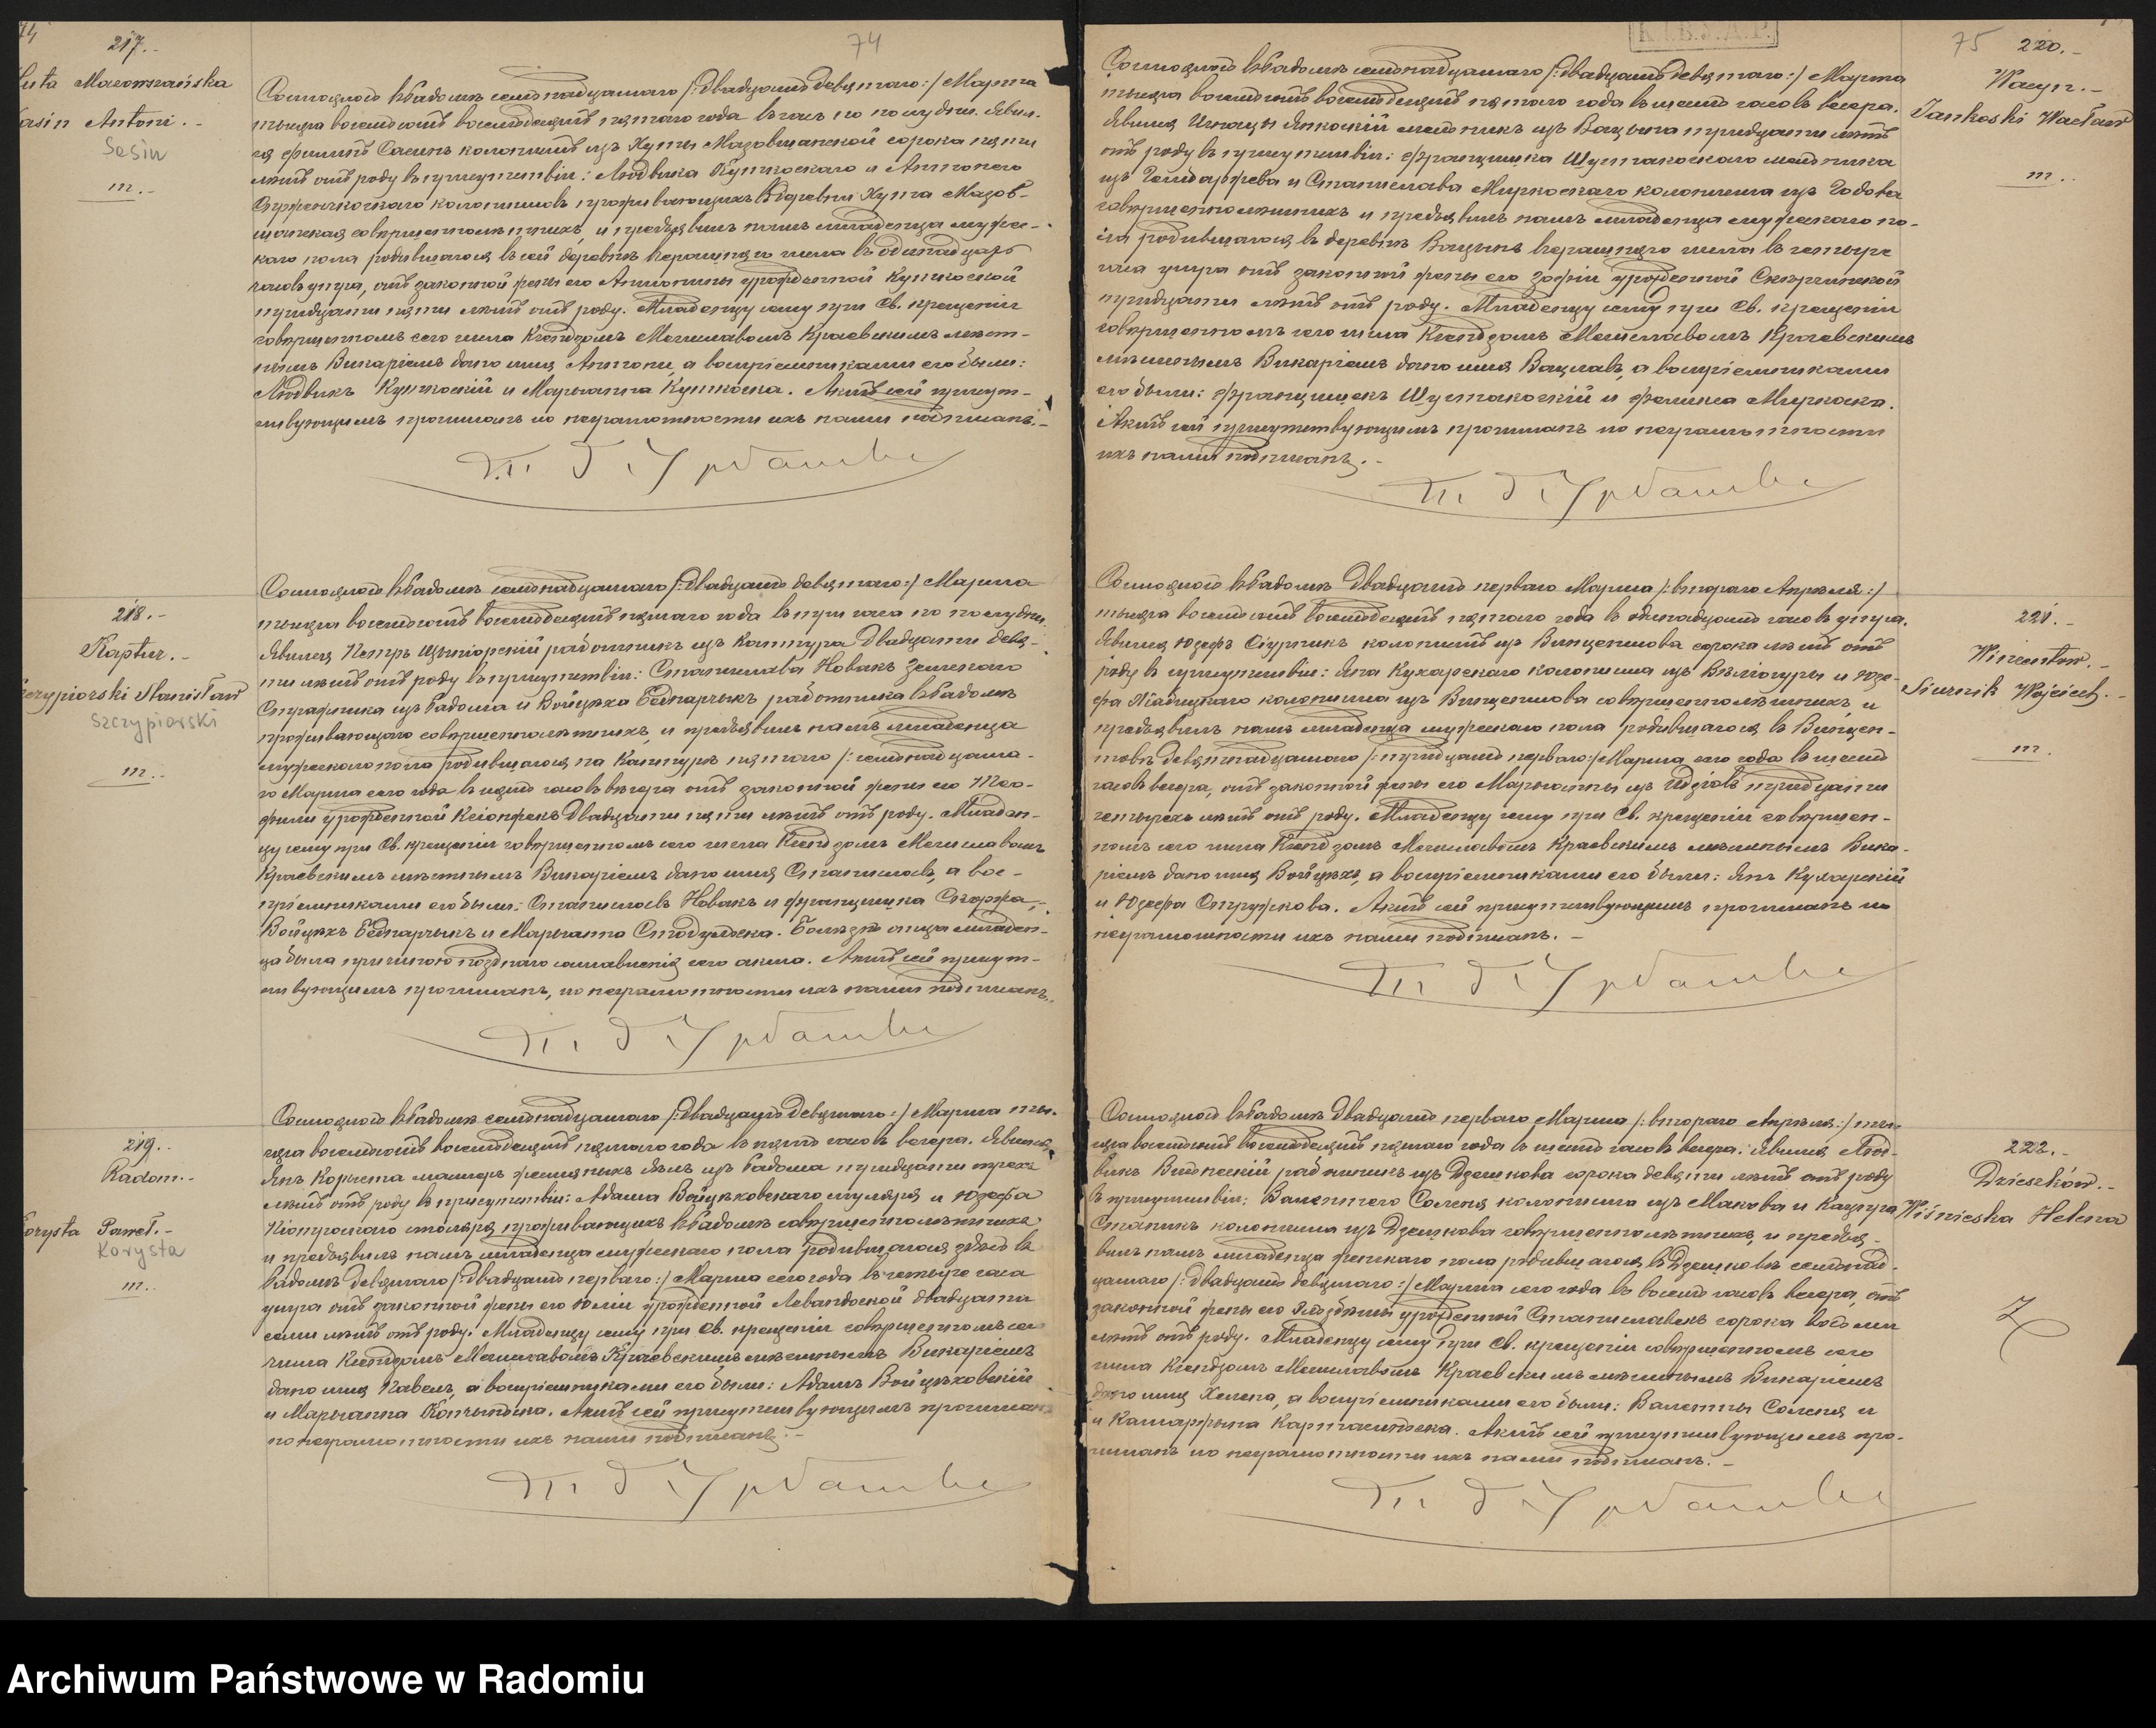 74
217.-
Huta Mazowszańska
Sasin Antoni.-
Sasin
m.-
Состоялось въ Радомѣ семнадцатаго /:двадцать девятаго:/ Марта
тысяча восемьсотъ восемьдесятъ пятаго года въ часъ по полудни. Явил-
ся Филипъ Сасинъ колонистъ изъ Хуты Мазовшанской сорока пяти
лѣтъ отъ роду въ присутствіи: Людвика Куткоскаго и Антонего
колонистовъ проживающихъ въ деревни Хута Мазов-
шанская совершеннолѣтнихъ, и предъявилъ намъ младенца мужес-
каго пола родившагося въ сей деревнѣ вчерашняго числа въ одинадцать
часовъ утра, отъ законной жены его Антонины урожденной Куткоской
тридцати пяти лѣтъ отъ роду. Младенцу сему при Св. крещеніи
совершенномъ сего числа Ксендзомъ Мечиславомъ Краевскимъ мѣст-
нымъ Викаріемъ дано имя Антони, а воспріемниками его были:
Людвикъ Куткоскій и Марьянна Куткоска. Актъ сей присут-
ствующимъ прочитанъ по неграмотности ихъ нами подписанъ.-
218.-
Kaptur.-
Szczypiorski Stanisław
Szczypiorski
m.-
Состоялось въ Радомѣ семнадцатаго /:двадцать девятаго:/ Марта
тысяча восемьсотъ восемьдесятъ пятаго года въ три часа по полудни.
Явился Петръ Щыпіорскій работникъ изъ Каптура двадцати девя-
ти лѣтъ отъ роду въ присутствіи: Станислава Новакъ Земскаго
Стражника изъ Радома и Войцѣха Беднарчыкъ работника въ Радомѣ
проживающаго совершеннолѣтнихъ, и предъявилъ намъ младенца
мужескаго пола родившагося на Каптурѣ пятаго /:семнадцата-
го Марта сего года въ часовъ вечера отъ законной жены его Тео-
фили урожденной двадцати пяти лѣтъ отъ роду. Младен-
цу сему при Св. крещеніи совершенномъ сего числа Ксендзомъ Мечиславомъ
Краевскимъ мѣстнымъ Викаріемъ дано имя Станиславъ, а вос-
пріемниками его были: Станиславъ Новакъ и Францишка
Войцѣхъ Беднарчыкъ и Марьянна Стодульска. Болѣзнь отца младен-
ца была причиною поздняго составленія сего акта. Актъ сей присут-
ствующимъ прочитанъ, по неграмотности ихъ нами подписанъ.
219.-
Radom.-
Korysta Paweł.-
Korysta
m.-
Состоялось въ Радомѣ семнадцатаго /:двадцать девятаго:/ Марта ты-
сяча восемьсотъ восемьдесятъ пятаго года въ пять часовъ вечера. Явился
Янъ Корыста изъ Радома тридцати трехъ
лѣтъ отъ роду въ присутствіи: Адама Войцѣховскаго муляря и Юзефа
столяра проживающихъ въ Радомѣ совершеннолѣтнихъ
и предъявилъ намъ младенца мужескаго пола родившагося здѣсь въ
Радомѣ девятаго /:двадцать перваго:/ Марта сего года въ четыре часа
утра отъ законной жены его Юліи урожденной Левандоской двадцати
семи лѣтъ отъ роду. Младенцу сему при Св. крещеніи совершенномъ сего
числа Ксендзомъ Мечиславомъ Краевскимъ мѣстнымъ Викаріемъ
дано имя Павелъ, а воспріемниками его были: Адамъ Войцѣховскій
и Марьянна. Актъ сей присутствующимъ прочитанъ
по неграмотности ихъ нами подписанъ.-
75
220.-
Wacyn.-
Jankoski Wacław
m.-
Состоялось въ Радомѣ семнадцатаго /:двадцать девятаго:/ Марта
тысяча восемьсотъ восемьдесятъ пятаго года въ шесть часовъ вечера.
Явился Игнацы Янкоскій изъ Вацына тридцати лѣтъ
отъ роду въ присутствіи: Францишка Шустакоскаго
изъ и Станислава Миркоскаго колониста изъ
совершеннолѣтнихъ и предъявилъ намъ младенца мужескаго по-
ла родившагося въ деревнѣ Вацынѣ вчерашняго числа въ четыре
часа утра отъ законной жены его Зофіи урожденной
тридцати лѣтъ отъ роду. Младенцу сему при Св. крещеніи
совершенномъ сего числа Ксендзомъ Мечиславомъ Краевскимъ
мѣстнымъ Викаріемъ дано имя Вацлавъ, а воспріемниками
его были: Францишекъ Шустакоскій и Феликса Миркоска.
Актъ сей присутствующимъ прочитанъ по неграмотности
ихъ нами подписанъ.-
221.-
Wincentów.-
Siurnik Wojciech.-
m.
Состоялось въ Радомѣ двадцать перваго Марта /:втораго Апрѣля:/
тысяча восемьсотъ восемьдесятъ пятаго года въ одинадцать часовъ утра.
Явился Юзефъ Сіурникъ колонистъ изъ Винцентова сорока лѣтъ отъ
роду въ присутствіи: Яна Кухарскаго колониста изъ и Юзе-
фа колониста изъ Винцентова совершеннолѣтнихъ и
предъявилъ намъ младенца мужескаго пола родившагося въ Винцен-
товѣ девятнадцатаго /:тридцать перваго:/ Марта сего года въ шесть
часовъ вечера, отъ законной жены его Марьянны изъ тридцати
четырехъ лѣтъ отъ роду. Младенцу сему при Св. крещеніи совершен-
номъ сего числа Ксендзомъ Мечиславомъ Краевскимъ мѣстнымъ Вика-
ріемъ дано имя Войцѣхъ, а воспріемниками его были: Янъ Кухарскій
и Юзефа Стружкова. Актъ сей присутствующимъ прочитанъ по
неграмотности ихъ нами подписанъ.-
222.-
Dzieszków.-
Wiśnieska Helena
Ż
Состоялось въ Радомѣ двадцать перваго Марта /:втораго Апрѣля:/ ты-
сяча восемьсотъ восемьдесятъ пятаго года въ шесть часовъ вечера. Явился Люд-
викъ работникъ изъ Дзешкова сорока девяти лѣтъ отъ роду
въ присутствіи: Валентего Соленя колониста изъ Макова и Кацпра
Станикъ колониста изъ Дзешкова совершеннолѣтнихъ, и предъя-
вилъ намъ младенца женскаго пола родившагося въ Дзешковѣ семнад-
цатаго /:двадцать девятаго:/ Марта сего года въ восемь часовъ вечера, отъ
законной жены его урожденной Станиславекъ сорока восьми
лѣтъ отъ роду. Младенцу сему при Св. крещеніи совершенномъ сего
числа Ксендзомъ Мечиславомъ Краевскимъ мѣстнымъ Викаріемъ
дано имя Хелена, а воспріемниками его были: Валенты Соленя и
и Катаржына. Актъ сей присутствующимъ про-
читанъ по неграмотности ихъ нами подписанъ.-
Archiwum Państwowe w Radomiu